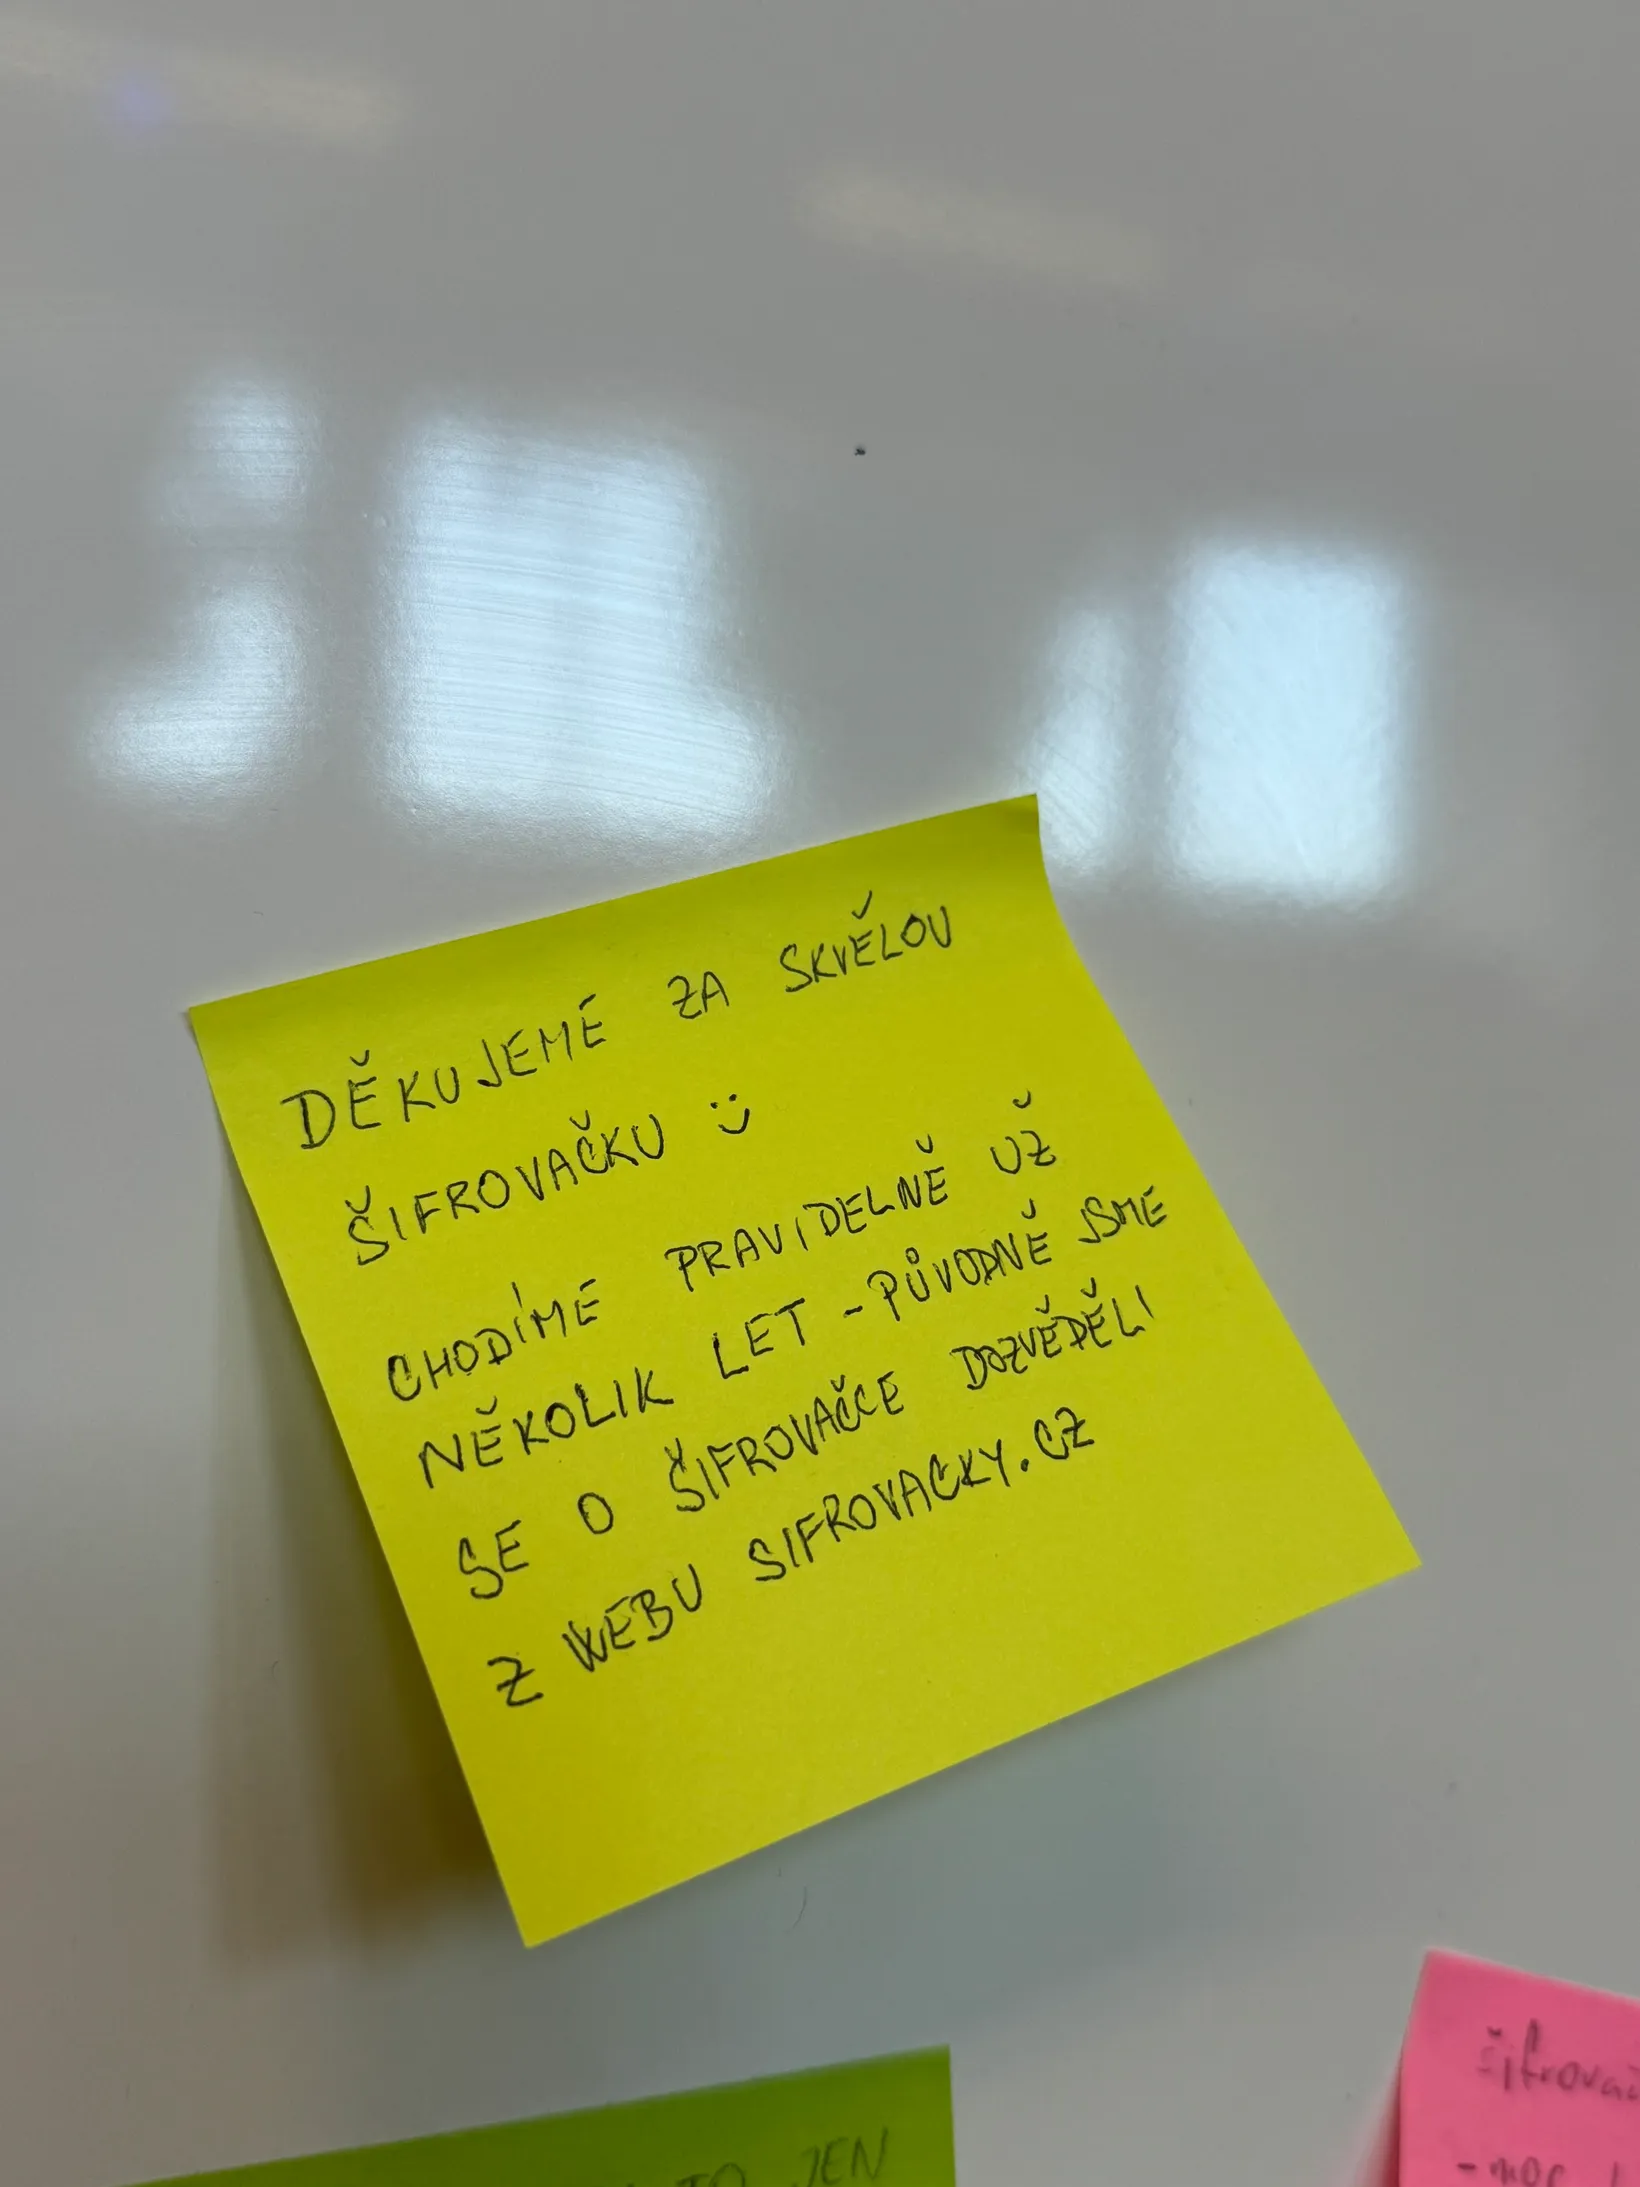 DĚKUJEME ZA SKVĚLOU
ŠIFROVAČKU :)
CHODÍME PRAVIDELNĚ UŽ
NĚKOLIK LET - PŮVODNĚ JSME
SE O ŠIFROVAČCE DOZVĚDĚLI
Z WEBU SIFROVACKY.CZ
JEN